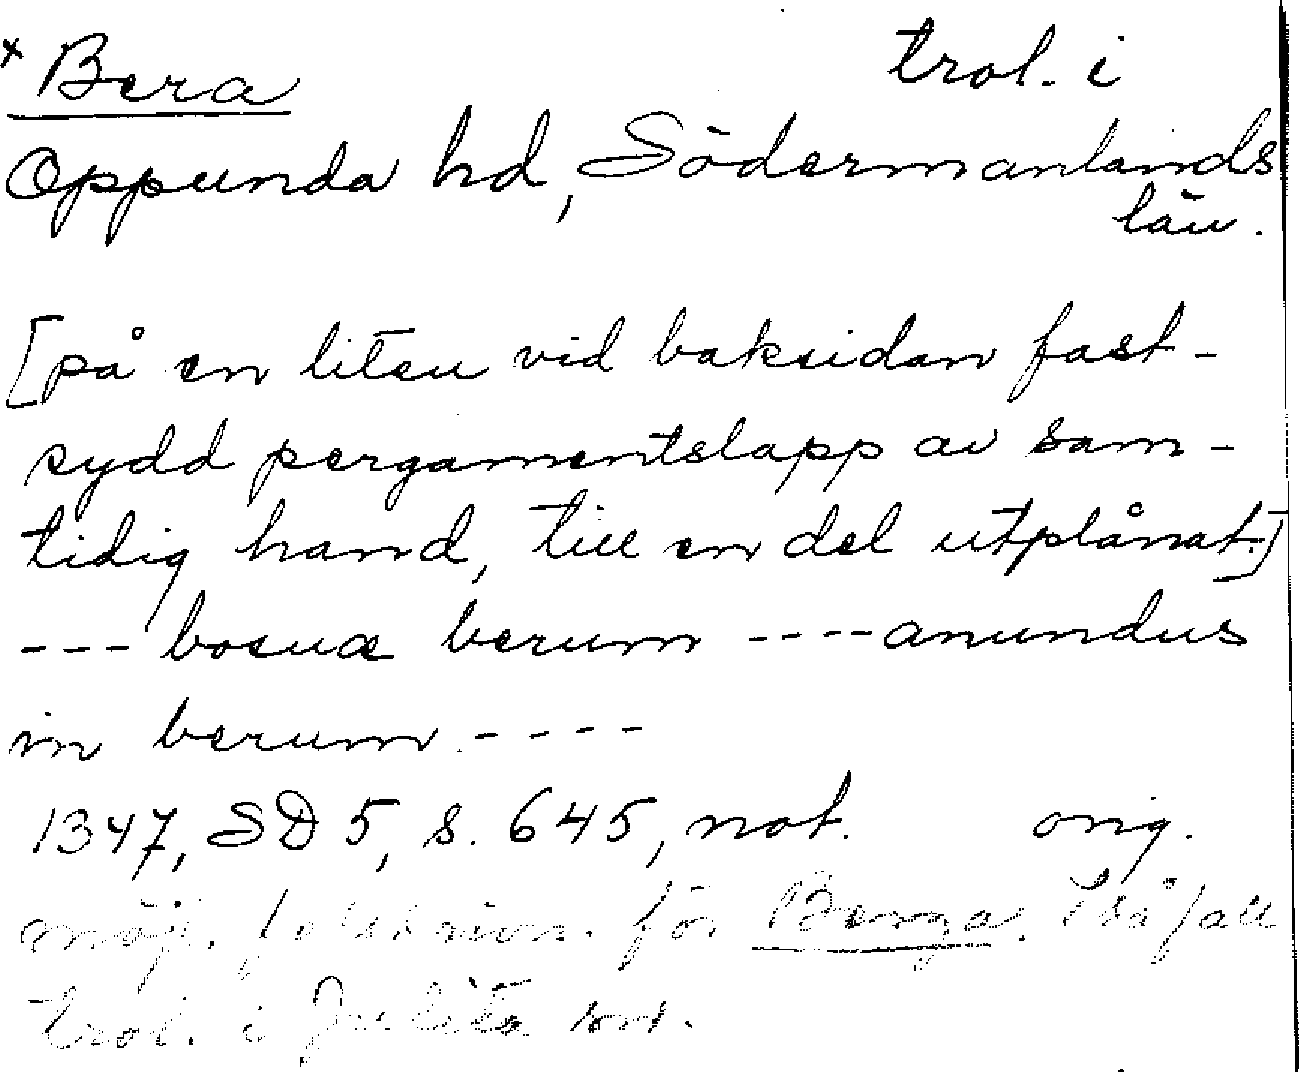 x Bera trol. i
Oppunda hd, Södermanlands
län.
[på en liten vid baksidan fast-
sydd pergamentslapp av sam-
tidig hand, till en del utplånat.]
--- bosuæ berum ---- anundus
in berum ----
1347, SD 5, s. 645, not. orig.
möjl. felskrivn. för Berga. I så fall
trol. i Julita sn.